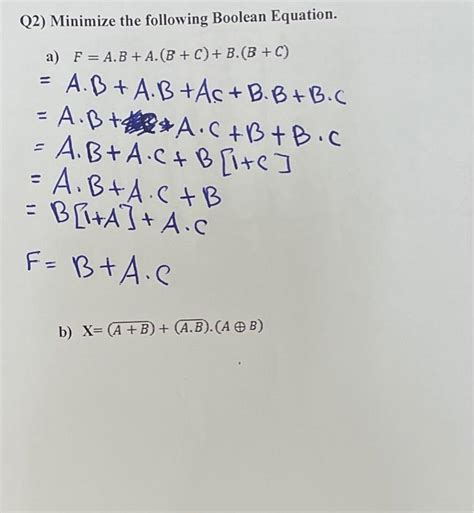 Q2) Minimize the following Boolean Equation.
a) F = A.B + A.(B + C) + B.(B + C)
= A.B + A.B + AC + B.B + B.C
= A.B + + A.C + B + B.C
= A.B + A.C + B[1+C]
= A.B + A.C + B
= B[1+A] + A.C
F = B + A.C
b) X= (A̅ ̅+̅ ̅B̅) + (A̅.̅B̅).(A ⊕ B)